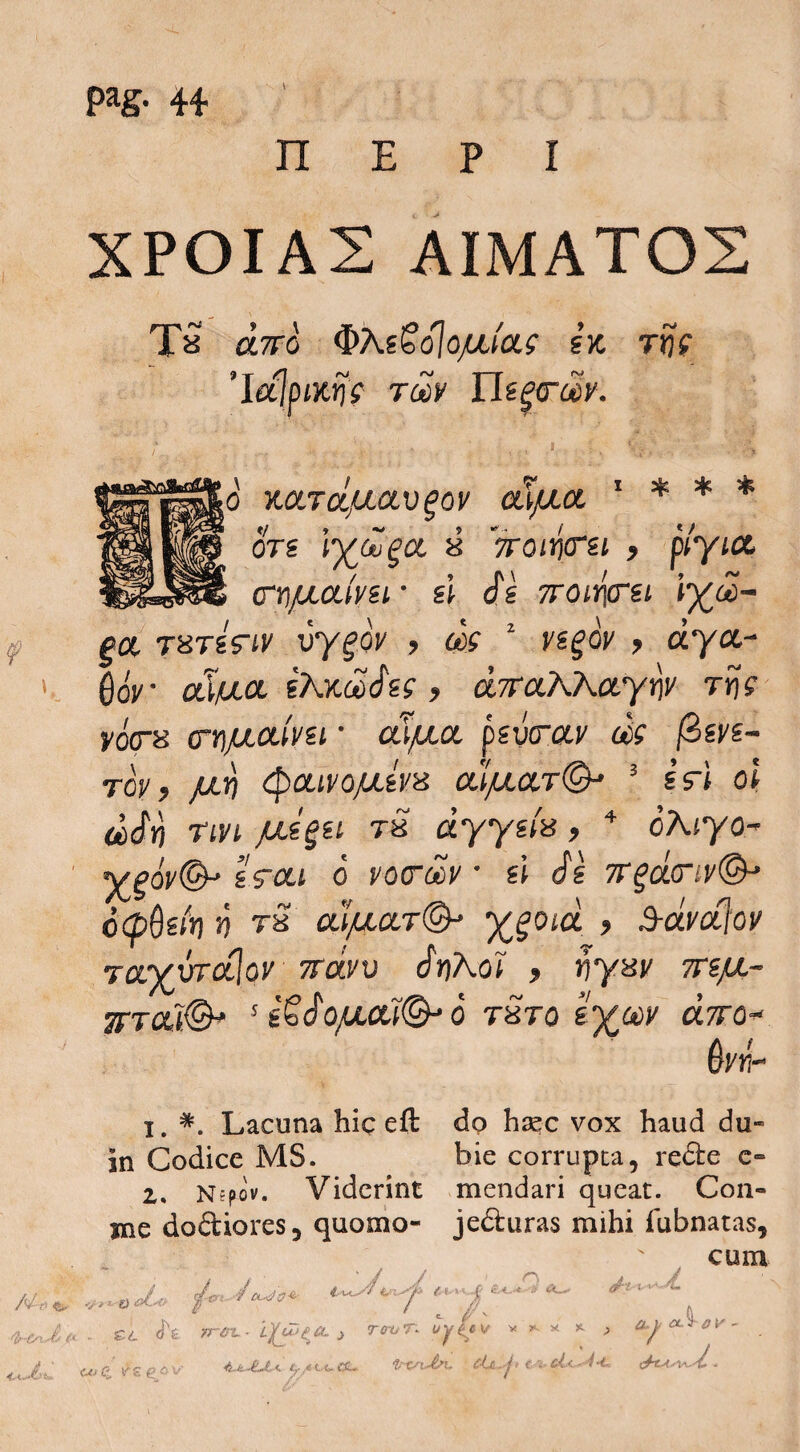 pag. 44
Π Ε Ρ Ι
ΧΡΟΙΑΣ ΑΙΜΑΤΟΣ
Τȣ͂ ἀπὸ Φλεϐοτομίας ἐκ τῆς
Ἰατρικῆς τῶν Περσῶν.
Τὸ κατάμαυρον αἷμα ¹ * * *
ὅτε ἰχῶρα ȣ̓ ποιήσει, ῥίγια
σημαίνει· εἰ δὲ ποιήσει ἰχῶ-
ρα τȣτέϛιν ὑγρὸν, ὡς ² νερὸν, ἀγα-
θόν· αἷμα ἑλκῶδες, ἀπαλλαγὴν τῆς
νόσȣ σημαίνει· αἷμα ῥεῦσαν ὡς βενε-
τὸν, μὴ φαινομένȣ αἵματ©- ³ ἐϛὶ οἱ
ὠδὴ τινι μέρει τȣ͂ ἀγγείȣ, ⁴ ὀλιγο-
χρόν©- ἔϛαι ὁ νοσῶν· εἰ δὲ πράσιν©-
ὀφθείη ἡ τȣ͂ αἵματ©- χροιὰ, θάνατον
ταχύτατον πάνυ δηλοῖ, ἤγȣν πεμ-
πταῖ©- ⁵ ἑϐδομαῖ©- ὁ τȣ͂το ἔχων ἀπο-
θνή-
1. *. Lacuna hic eſt
in Codice MS.
2. Νερόν. Viderint
me doctiores, quomo-
do hæc vox haud du-
bie corrupta, recte e-
mendari queat. Con-
jecturas mihi ſubnatas,
cum
εἰ δὲ ποι. ἰχῶρα, τουτ. ὑγρὸν * * * *, ἀγαθὸν
ὡς νερὸν